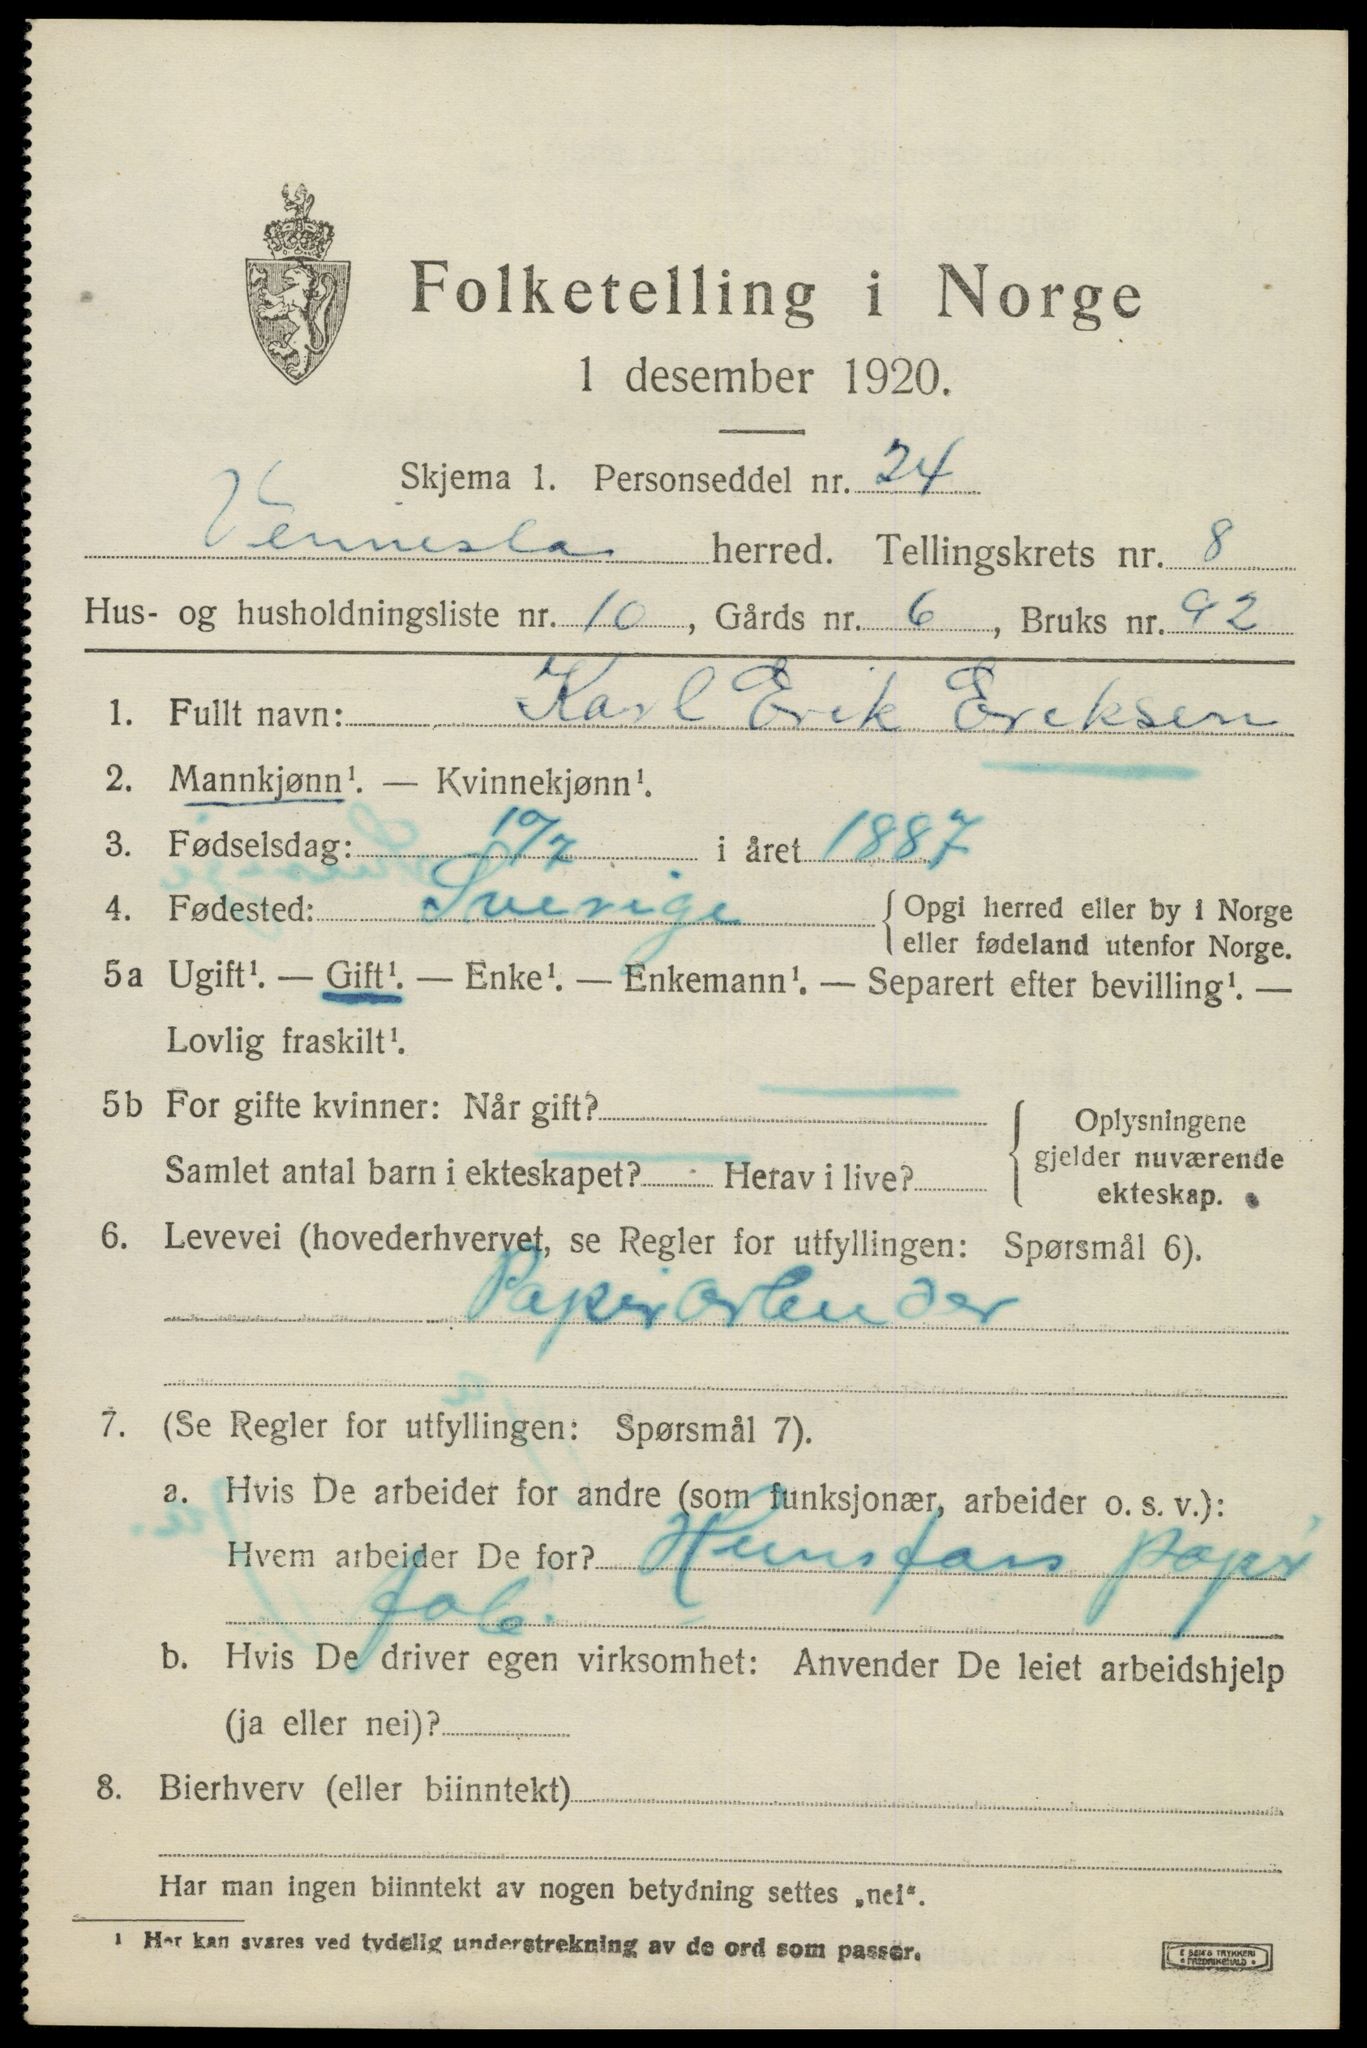 Folketelling i Norge
1 desember 1920.
Skjema 1. Personseddel nr. 24
Vennesla herred. Tellingskrets nr. 8
Hus- og husholdningsliste nr. 10, Gårds nr. 6, Bruks nr. 92
1. Fullt navn: Karl Erik Eriksen
2. Mannkjønn¹. — Kvinnekjønn¹.
3. Fødselsdag: i året 1887
4. Fødested: Sverige { Opgi herred eller by i Norge
eller fødeland utenfor Norge.
5a Ugift¹. — Gift¹. — Enke¹. — Enkemann¹. — Separert efter bevilling¹. —
Lovlig fraskilt¹.
5b For gifte kvinner: Når gift? { Oplysningene
gjelder nuværende
ekteskap.
Samlet antal barn i ekteskapet? Herav i live?
6. Levevei (hovederhvervet, se Regler for utfyllingen: Spørsmål 6).
Papirarbeider
7. (Se Regler for utfyllingen: Spørsmål 7).
a. Hvis De arbeider for andre (som funksjonær, arbeider o. s. v.):
Hvem arbeider De for? Hunsfoss papir
fab.
b. Hvis De driver egen virksomhet: Anvender De leiet arbeidshjelp
(ja eller nei)?
8. Bierhverv (eller biinntekt)
Har man ingen biinntekt av nogen betydning settes „nei“.
¹ Her kan svares ved tydelig understrekning av de ord som passer.
E SEM'S TRYKKERI
• FREDRIKSHALD •